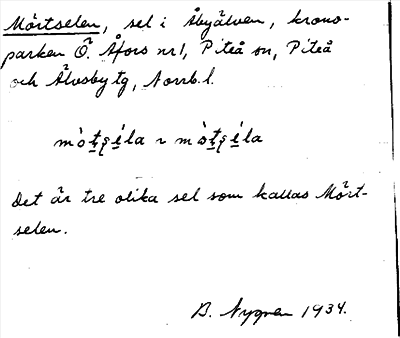 Mörtselen, sel i Åbyälven, krono-
parken Ö. Åfors nr 1, Piteå sn, Piteå
och Älvsby tg, Norrb. l.
mò̀tʂéla ~ mò̀tʂéla
Det är tre olika sel som kallas Mört-
selen.
B. Nygren 1934.